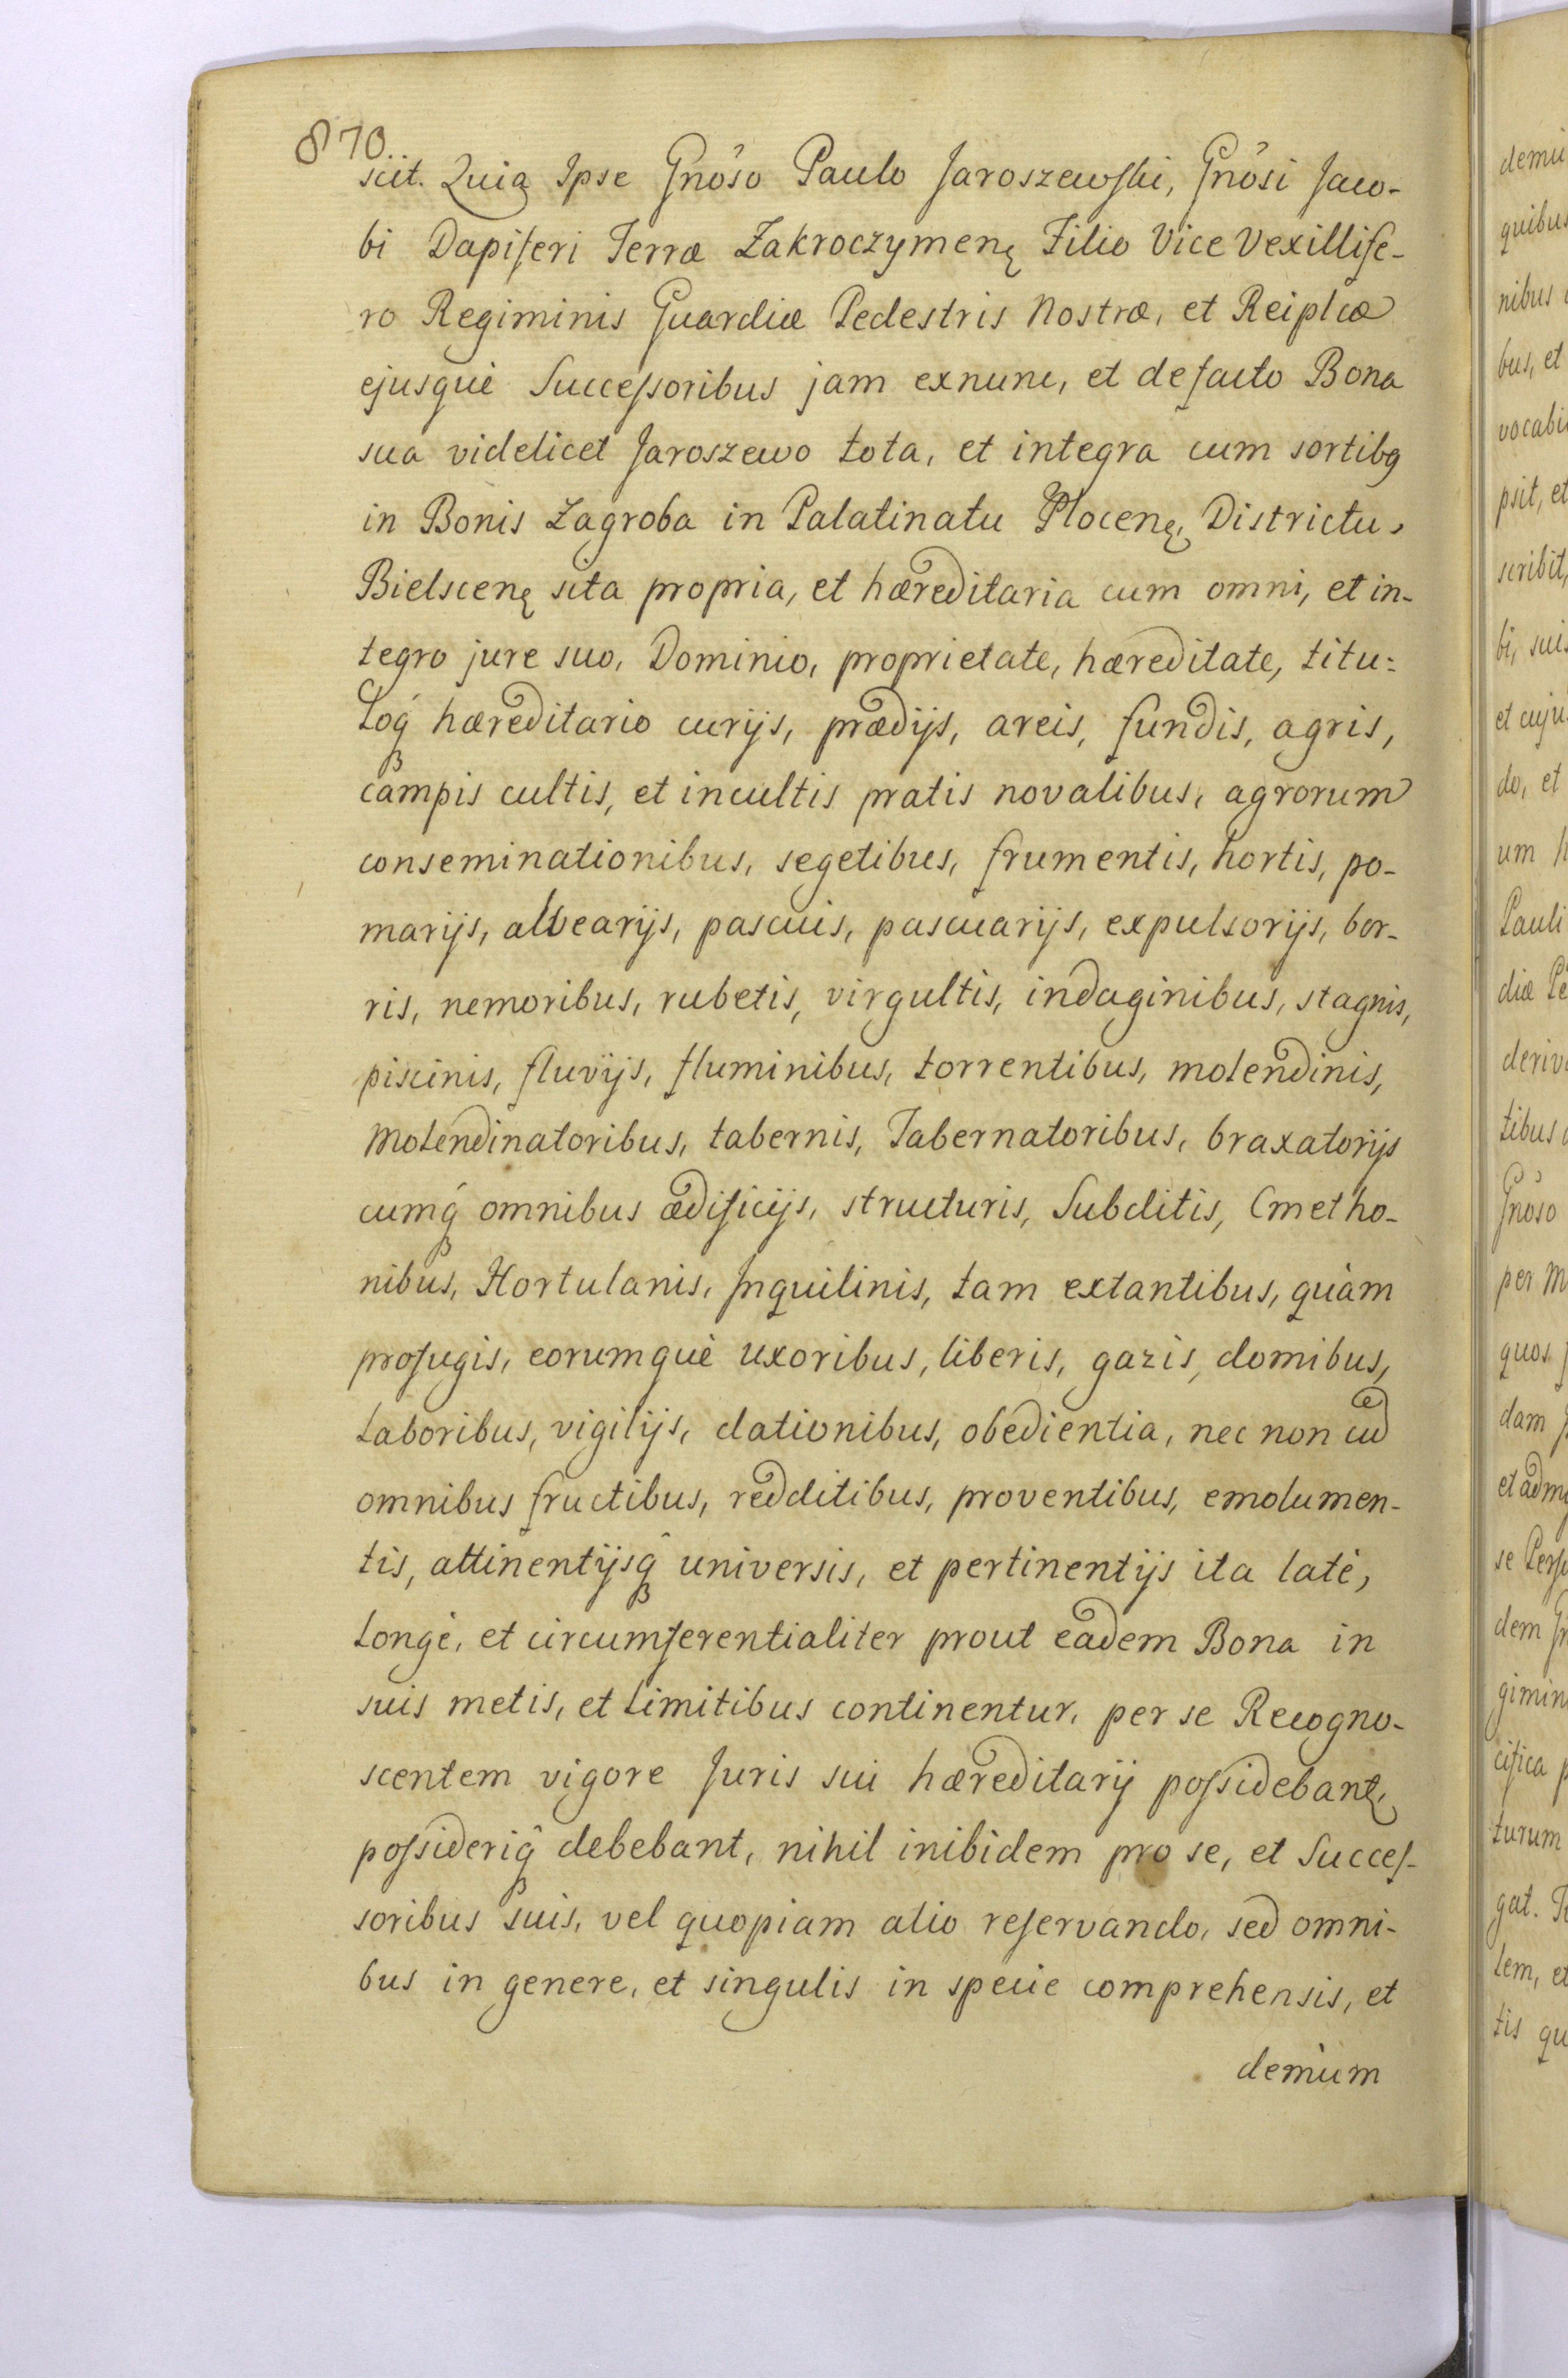 870
scit. Quia Ipse Gnõso Paulo Jaroszewski, Gnõsi Jaco-
bi Dapiferi Terræ Zakroczymenę Filio Vice Vexillife-
ro Regiminis Guardiæ Pedestris Nostræ, et Reiplicæ
ejusquè Successoribus jam exnunc, et defacto Bona
sua videlicet Jaroszewo tota, et integra cum sortibq
in Bonis Zagroba in Palatinatu Plocenę, Districtu,
Bielscenę sita propria, et hæreditaria cum omni, et in-
tegro jure suo, Dominio, proprietate, hæreditate, titu=
loq́ hæreditario curijs, prædijs, areis, fundis, agris,
campis cultis, et incultis pratis novalibus, agrorum
conseminationibus, segetibus, frumentis, hortis, po-
marijs, alvearijs, pascuis, pascuarijs, expulsorijs, bor-
ris, nemoribus, rubetis, virgultis, indaginibus, stagnis,
piscinis, fluvijs, fluminibus, torrentibus, molendinis,
Molendinatoribus, tabernis, Tabernatoribus, braxatorijs
cumq́ omnibus ædificijs, structuris, Subditis, Cmetho-
nibus, Hortulanis, Inquilinis, tam extantibus, quàm
profugis, eorumquè uxoribus, liberis, gazis, domibus,
laboribus, vigilijs, dationibus, obedientia, nec non cũ
omnibus fructibus, redditibus, proventibus, emolumen-
tis, attinentijsq̂ universis, et pertinentijs ita latè,
longè, et circumferentialiter prout eadem Bona in
suis metis, et limitibus continentur, per se Recogno-
scentem vigore Juris sui hæreditarij possidebantę,
possideriq̂ debebant, nihil inibidem pro se, et Succes-
soribus suis, vel quopiam alio reservando, sed omni-
bus in genere, et singulis in specie comprehensis, et
demùm
demu
quibus
nibus
bus, et
vocabu
psit, et
scribit,
bi, suis
et cuju
do, et
um h
Pauli
diæ Pe
deriv
tibus
Gnõso
per M
quos
dam
et adm
se Perso
dem
gimin
cifica p
turum
gat. T
lem, et
tis qu